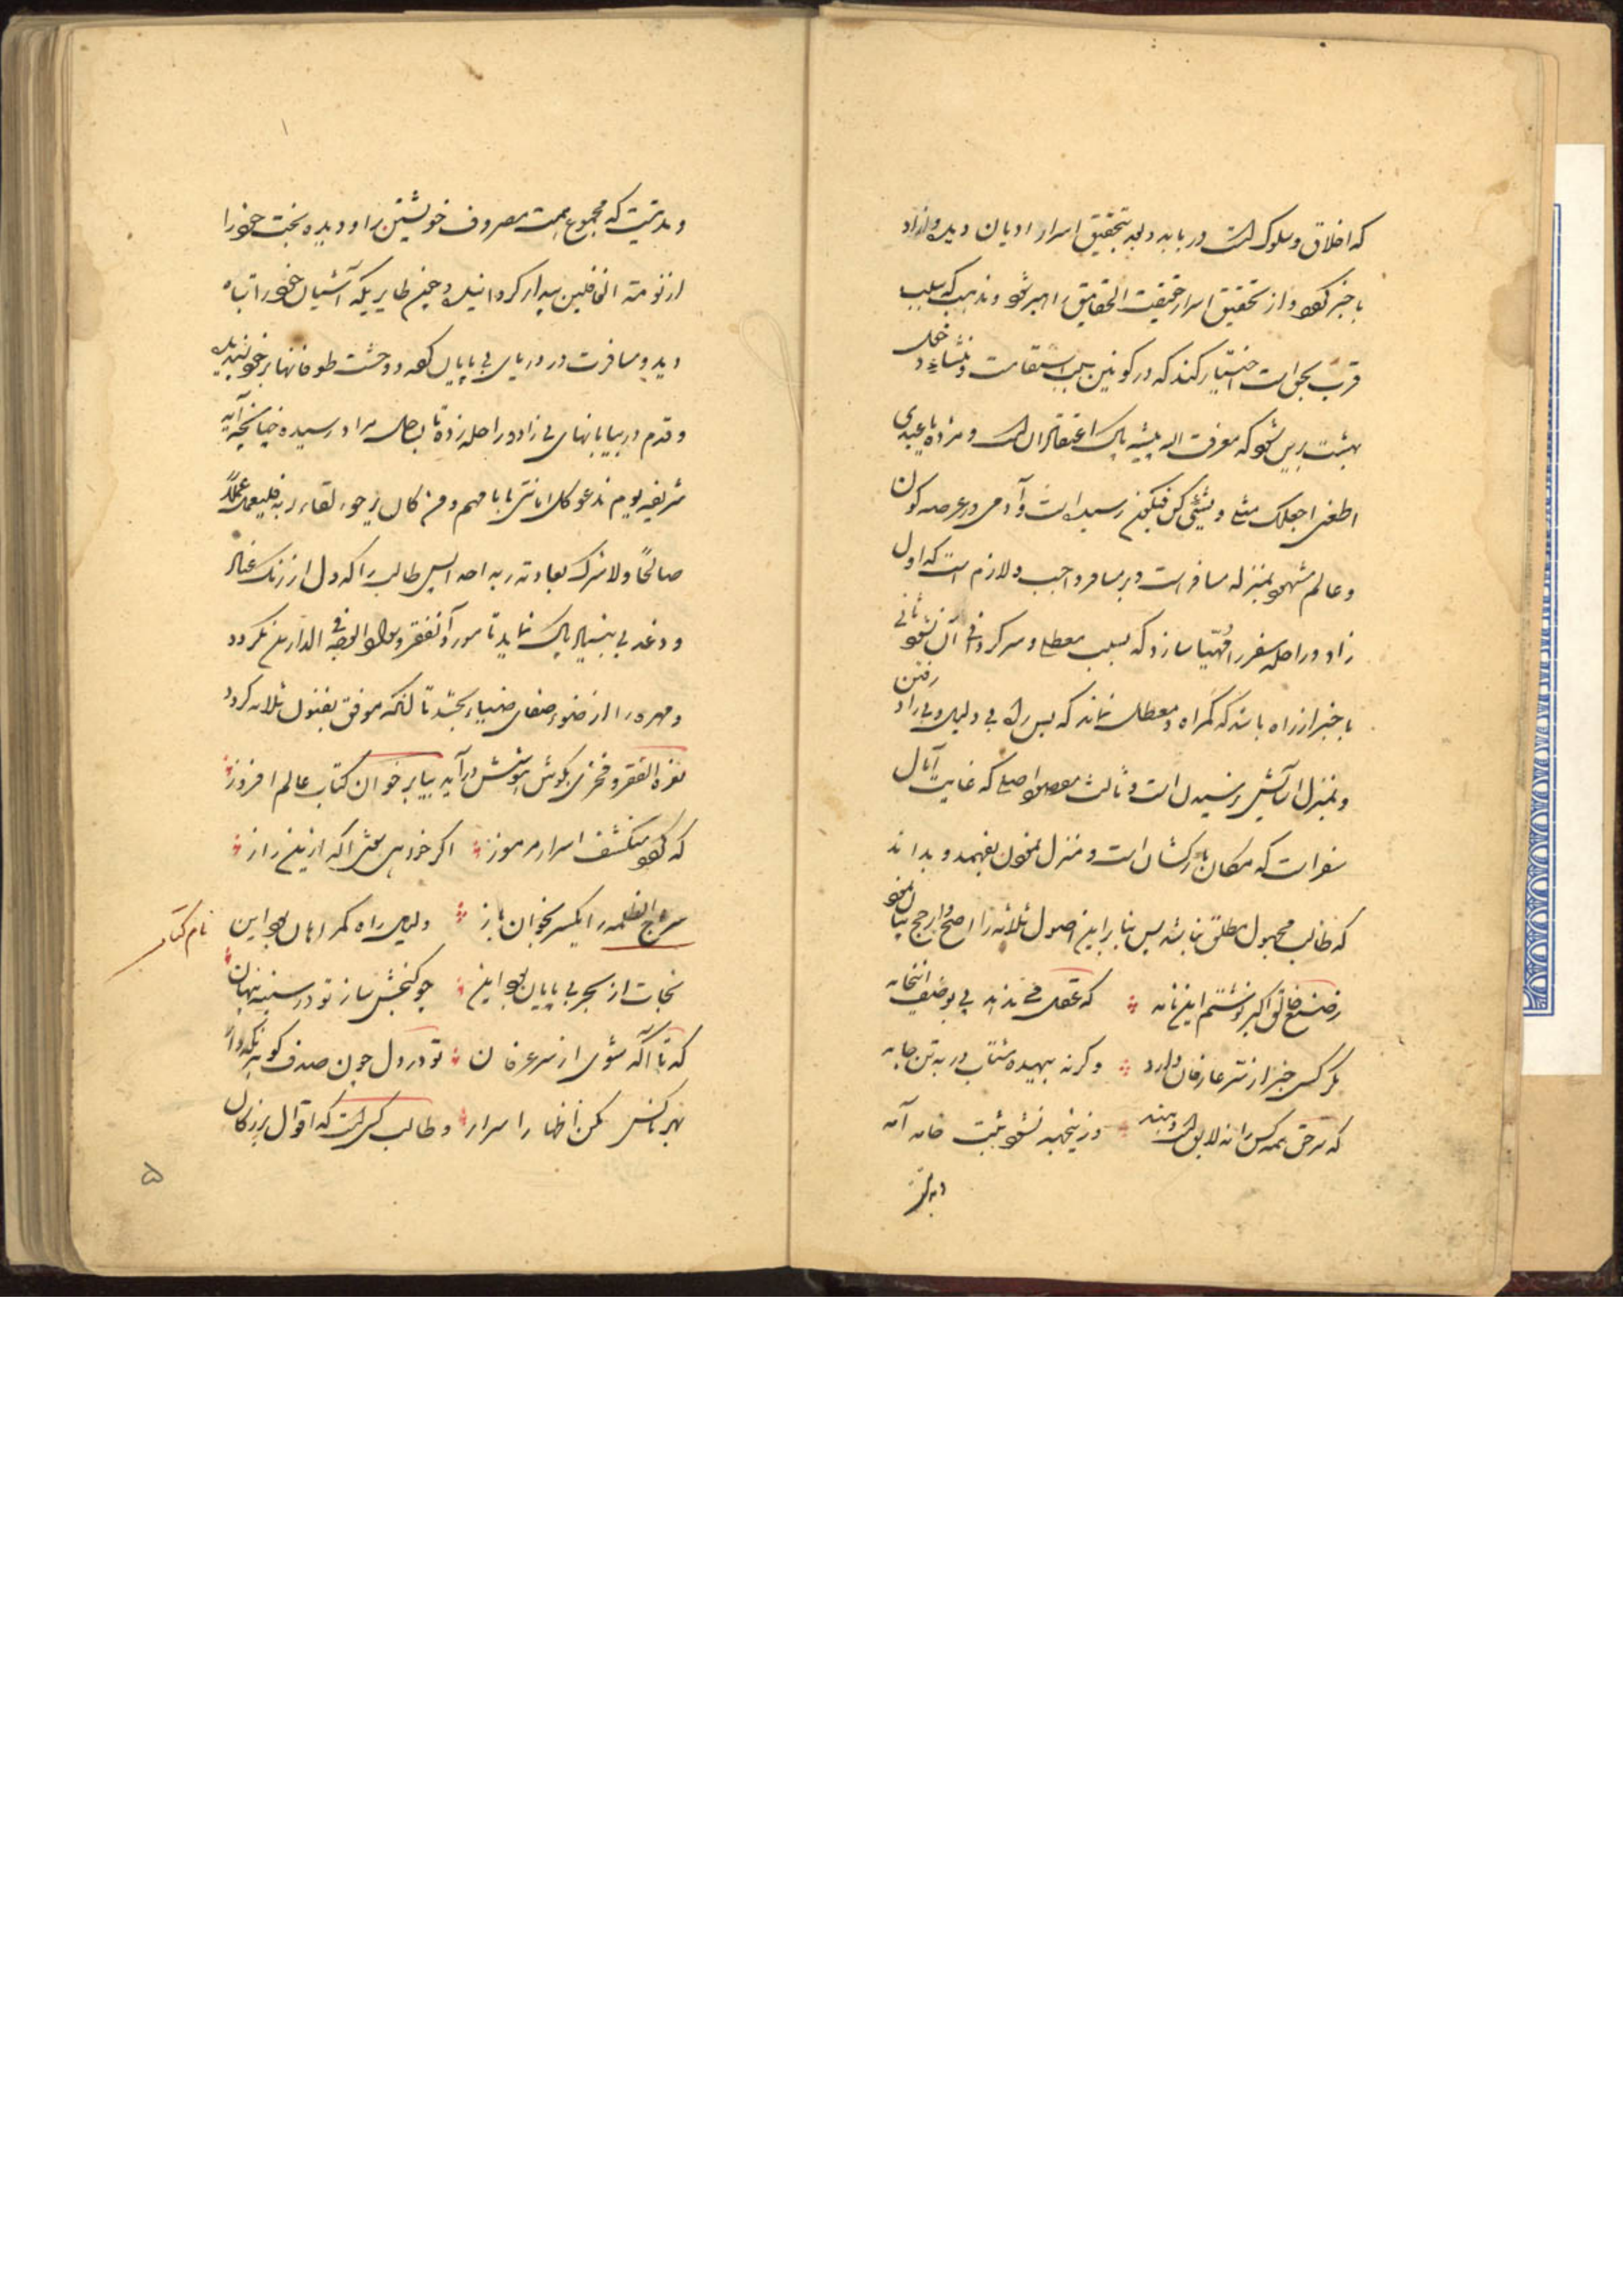 که اخلاق و سلوک است دریابد و بعد بتحقیق اسرار ادیان دیده و ازاد
با خبر گردد و از تحقیق اسرار حقیقت الحقایق راهبر شود و مذهب که سبب
قرب بحق است اختیار کند که در کونین سبب استقامت و منشاء دخل
بهشت برین شود که معرفت اله پیشه پاک اعتقادان است و مژده یا عبدی
اطعنی اجعلک مثلی و بشیئ کن فیکون رسیده است و آدمی در عرصه کون
و عالم مشهود بمنزله مسافر است و بر مسافر واجب و لازم است که اول
زاد و راحله سفر را مهیا سازد که بسبب معطلی و سرگردانی آن نشود ثانی
با خبر از راه باشد که گمراه و معطل نماند که بس راه بی دلیل و بی زاد رفتن
و بمنزل آسایش نرسیدن است و ثالث مقصود اصلی که غایت آمال
سفر است که مکان بازگشتان است و منزل خود بفهمد و بداند
که طالب مجهول مطلق نباشد پس بنابراین اصول ثلاثه را اصح و ارجح بیان نمود
ز صنع خالق اکبر نوشتم این نامه که عقل می نپذیرد بوصف
هر کس خبر از سر عارفان دارد وگرنه بیهده مشتاب در به تن جامه
که سر حق همه کس را نه لایق است دهند وزین نشود ثبت خانه آمه
و بدتیت که مجموع همت مصروف خویشتن را و دیده بخت خود را
از نومة الغافلین بیدار گردانیده و چون طایریکه آشیان خود را تباه
دید و مسافرت در دریای بی پایان کرده و وحشت طوفانها بر خود پسندیده
و قدم در بیابانهای بی زاد و راحله زده تا بساحل مراد رسیده چنانچه آیه
شریفه یوم ندعو کل اناس بامامهم و من کان یرجو لقاء ربه فلیعمل عملاً
صالحاً و لا یشرک بعبادة ربه احد پس طالب را که دل از زنگ
و دغدغه پاک نماید تا مورد الفقر سواد الوجه فی الدارین نگردد
و مهره را از ضوء صفای ضیاء بخشد تا آنکه موفق بفنون ثلاثه گردد
نعره الفقر فخری بگوش هوشش درآید بیا برخوان کتاب عالم افروز
که گردد منکشف اسرار مرموز اگر خواهی شوی آگه ازین راز
سراج الظلمه را یکسر بخوان باز دلیل راه گمراهان بود این
نام کتاب
نجات از بحر بی پایان بود این چو گنجش ساز تو در سینه پنهان
که تا آگه شوی از سر عرفان تو در دل چون صدف گوهر نگه دار
بهر ناکس مکن اظهار اسرار و طالب کسی است که اقوال بزرگان
۵